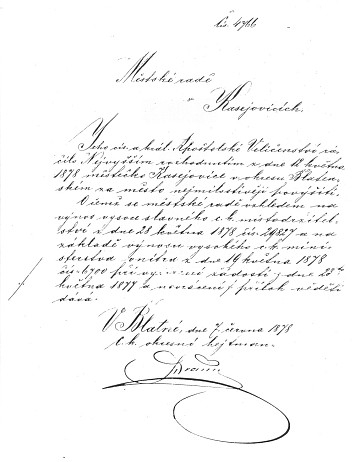 čís. 4766
Městské radě
v Kasejovicích.
Jeho cís. a král. Apoštolské Veličenstvo rá-
čilo Nejvyšším rozhodnutím z dne 12 května
1878 městečko Kasejovice v okresu Blaten-
ském za město nejmilostivěji povýšiti.
O čemž se městské radě vzhledem na
výnos vysoce slavného c.k. místodržitel-
ství z dne 28 května 1878 čís. 29827 a na
základě výnosu vysokého c.k. minis-
terstva vnitra z dne 19 května 1878
čís. 6700 při žádosti z dne 28
května 1877 a navrácení příloh věděti
dává.
V Blatné, dne 7. června 1878
C.k. okresní hejtman.